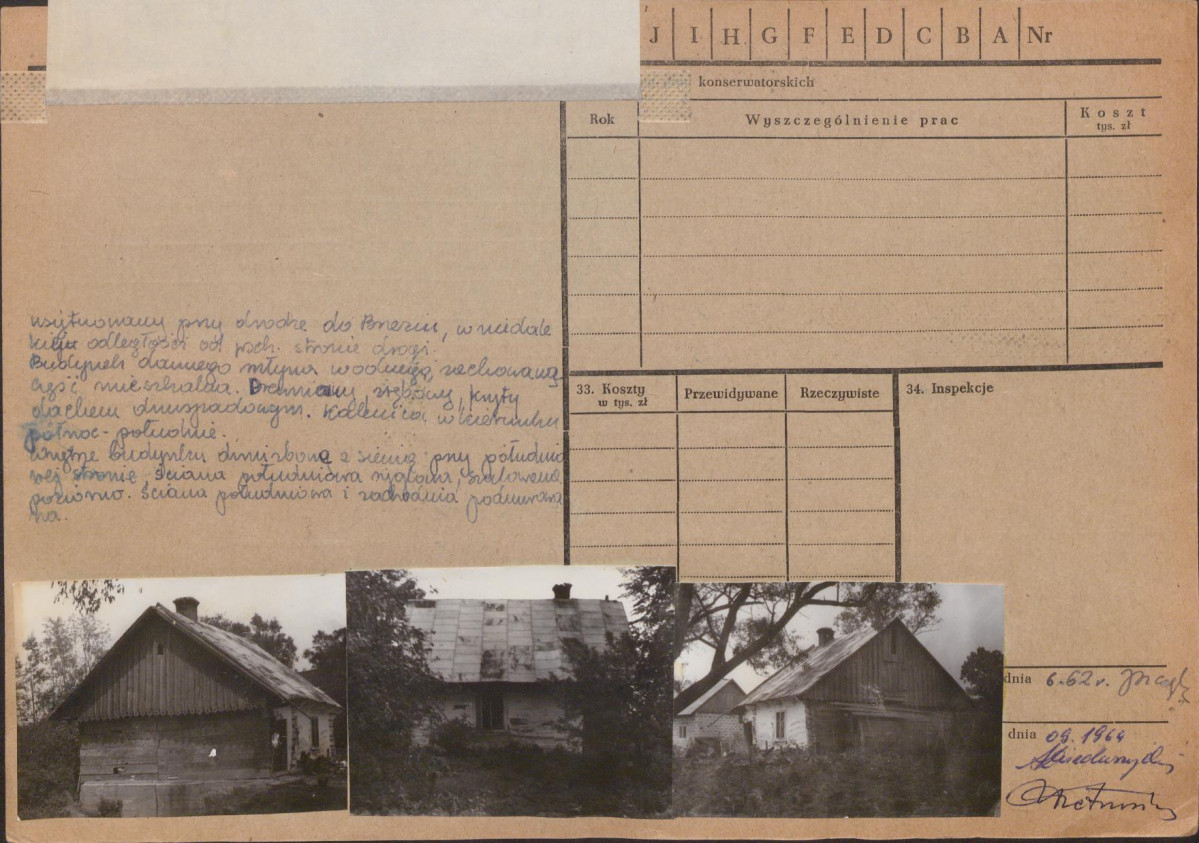 J I H G F E D C B A Nr
konserwatorskich
Rok Wyszczególnienie prac Koszt
tys. zł
usytuowany przy drodze do Brzezin, w niedale
kiej odległości od wsch. stronie drogi.
Budynek dawnego młyna wodnego, zachowana
część mieszkalna. Drewniany, zrębowy, kryty
dachem dwuspadowym. Kalenica w kierunku
północ-południe.
Wnętrze budynku dwuizbowe z sienią przy południo
wej stronie, ściana południowa szalowana
poziomo. Ściana południowa i zachodnia podmurowa
na.
33. Koszty
w tys. zł
Przewidywane Rzeczywiste 34. Inspekcje
dnia 6.62 r.
dnia 09.1964